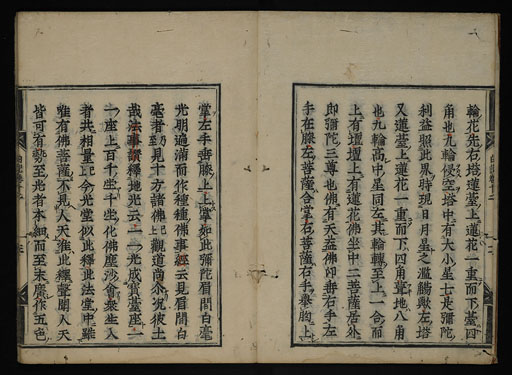 輪花先右塔蓮臺上蓮花一重而下臺四
角也九輪侵空塔中有大小星七是彌陀
利益照此界時現日月星之濫觴歟左塔
又蓮臺上蓮花一重而下四角臺地八角
也九輪高中星同左其輪轉至上一合而
上有壇壇上有蓮花佛坐中二菩薩居外
即彌陀三尊也佛有天蓋佛印垂右手左
手在膝左菩薩合掌右菩薩右手拳胸上
掌左手垂膝上上掌如此彌陀眉間白毫
光明遍滿而作種種佛事經云見眉間白
毫者則見十方諸佛記觀道尚介況彼土
哉法事讃釋地光云一一光成寶臺座一
一座上百千坐千坐化佛塵沙會衆生入
者共相量已今光堂似此釋此法堂中雖
雖有佛菩薩不見人天雖此釋聲聞人天
皆可有歟至光者本細而至末廣作五色